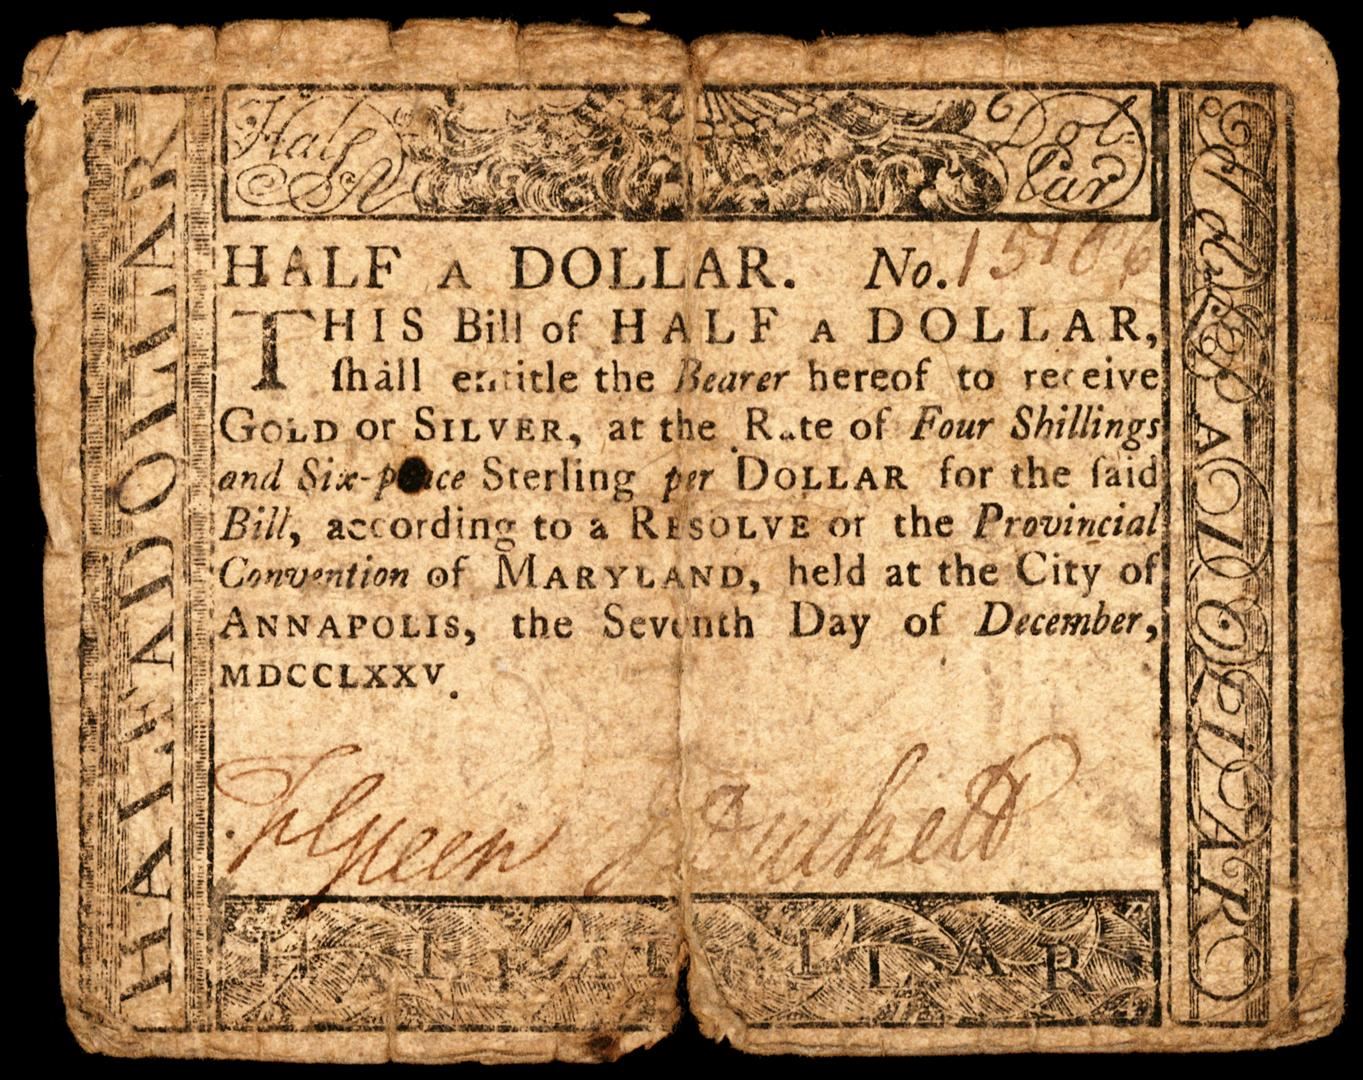 Half Dol-
lar
HALF A DOLLAR. No.
THIS Bill of HALF A DOLLAR,
ſhall entitle the Bearer hereof to receive
GOLD or SILVER, at the Rate of Four Shillings
and Six-pence Sterling per DOLLAR for the ſaid
Bill, according to a RESOLVE of the Provincial
Convention of MARYLAND, held at the City of
ANNAPOLIS, the Seventh Day of December,
MDCCLXXV.
Fk Green J Duckett
HALF A DOLLAR
HALF A DOLLAR
HALF A DOLLAR